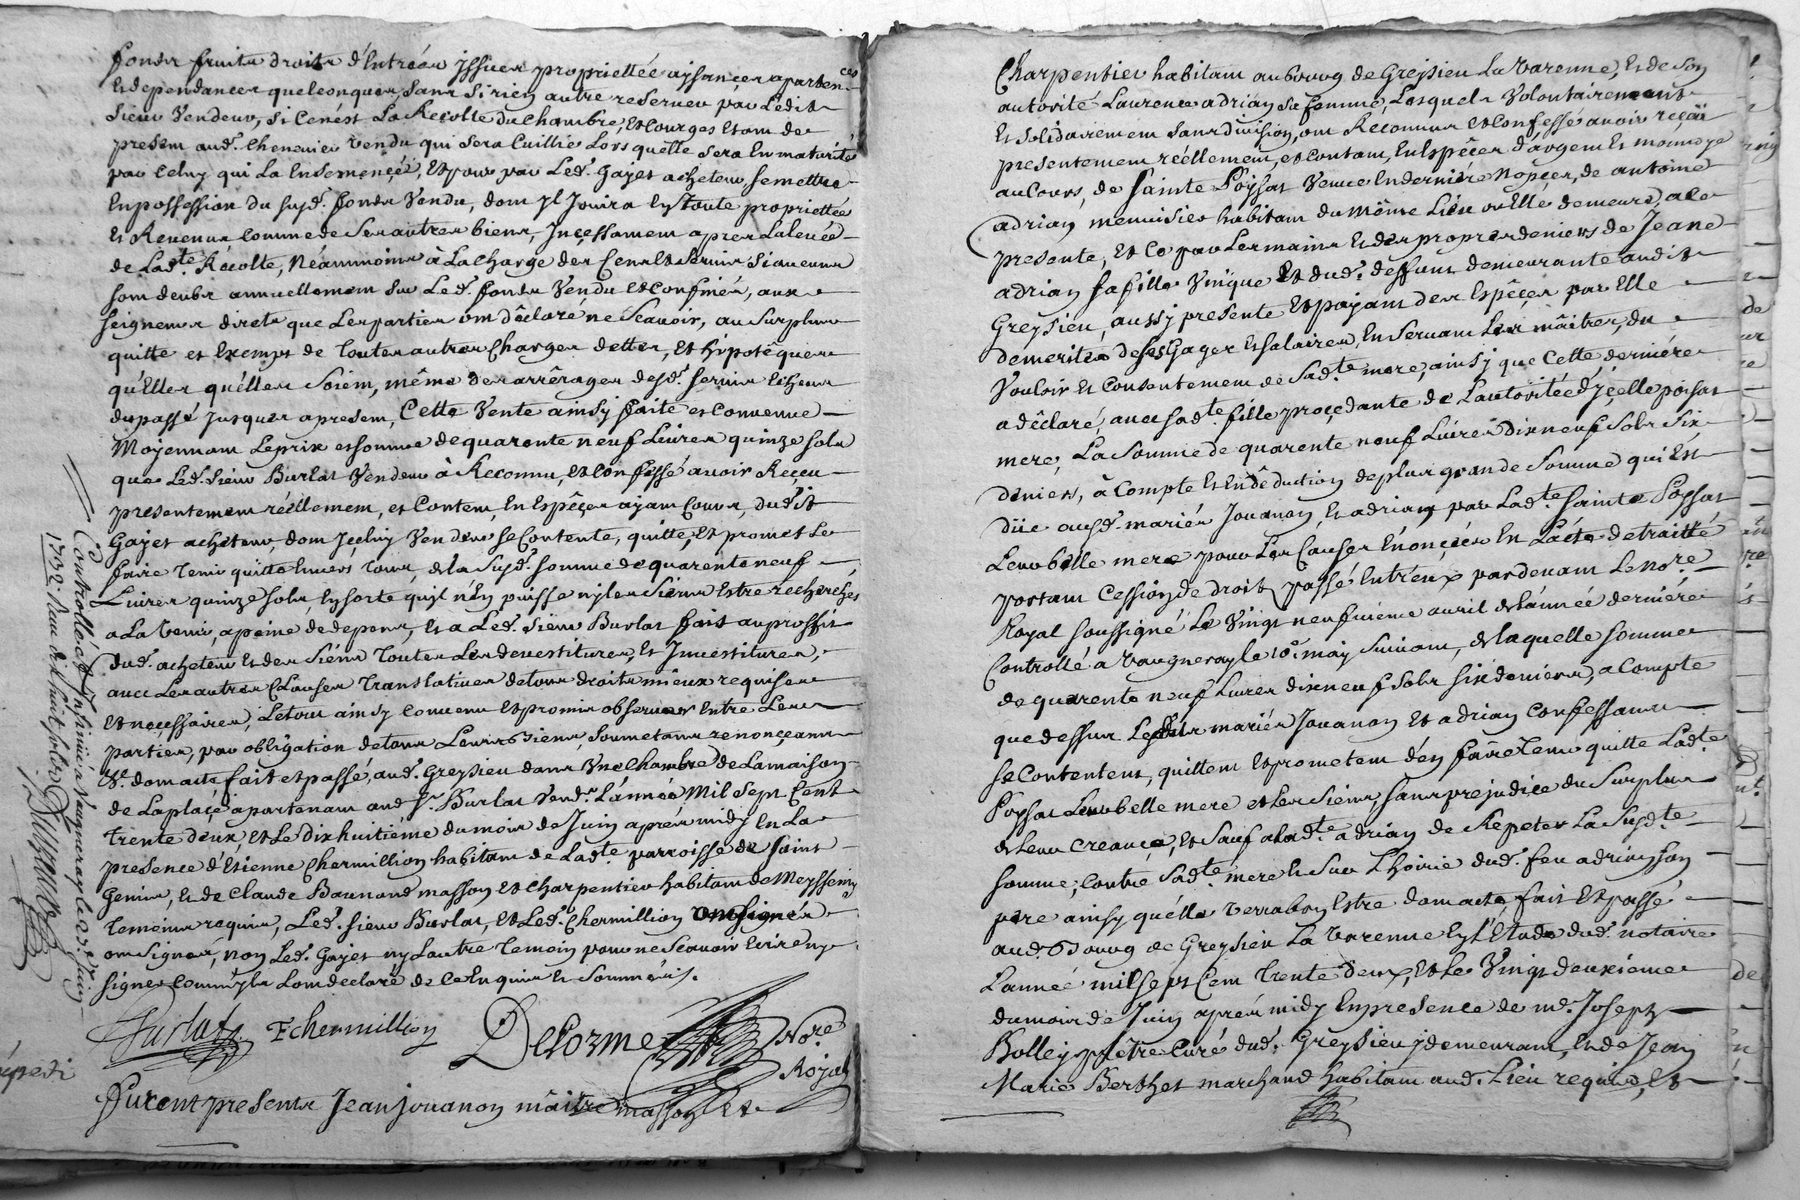 fonds fruits droits d'Entrées Issues proprietée aysances apartences
Et dependances quelconques sans si rien autre reserver par Ledit
sieur Vendeur, si Cenést La Recolte du Chambre, Et Courges Etant de
present aud. Chenevier vendu qui sera Cuillie Lors quelle sera En maturité
par Celuy qui La Ensemençée, Et pour par Led. Gayet acheteur se mettre
En possession du susd. fonds Vendu, dont jl Jouira En toute proprietée
Et Revenus Comme de Ses autres biens, Inçessament apres La levée
de Ladte. Recolte, Néammoins à La Charge des Cens Et servis si aucuns
sont deubs annuellement sur Led. fonds Vendu Et Confinés, aux
seigneurs directs que Les parties ont déclaré ne Scavoir, au Surplus
quitte et Exempt de toutes autres Charges dettes, Et hipotêques
qu'Elles quélles Soient, même des arrérages desd. servis Echeus
du passé Jusques apresent, Cette Vente ainsy faite et Convenue
Moyennant Le prix et somme de quarante neuf Livres quinze sols
que Led. Sieur Burlat Vendeur à Reconnu, Et Confessé avoir Reçeu
presentement réellement, et Content, En Espéçes ayant Cours, dudit
Gayet acheteur, dont Jçeluy Vendeur se Contente, quitte, Et promet Le
faire tenir quitte Envers tous, de la Susd. somme de quarante neuf
Livres quinze sols, En sorte qu'jl n'En puisse ny les Siens Estre recherchés
a La Venir, apeine de depens, Et a Led. Sieur Burlat fait au proffit
dud. acheteur Et des Siens toutes Les devestitures, Et Jnvestitures,
avec Les autres Clauses translatives de tous droits mieux requises
Et neçessaires, Le tout ainsy Convenu Et promis observer Entre Les
parties, par obligation de tous Leurs Biens, Soumetans renonçeans
Et. dont acte fait et passé, aud. Greysieu dans Une Chambre de La maison
de La plaçe apartenant aud Sr. Burlat Vendr. L'année Mil Sept Cent
trente deux, et Le dixhuitiéme du mois de Juin aprés midy En La
presence d'Etienne Chermillion habitant de Ladte. parroisse de Saint
Genis, Et de Claude Baunand masson Et Charpentier habitant de Meyssemy
temoins requis, Led. sieur Burlat, Et Led. Chermillion
ont Signés, non Led. Gayet ny Lautre temoin pour ne Scavoir Ecrire ny
signer Comm'jls L'ont declaré de Ce Enquis Et Sommés.
Burlat EChermillion Delorme Nore.
Royal
Furent presents Jean Jouanon maître masson Et
Controllé Et Insinué a Vaugneray le 23e. Juin
1732. Reçu dix huit sols
Expedi
Charpentier habitant au bourg de Greysieu La Varenne, Et de Son
autorité Laurence adrian sa femme, Lesquels Volontairement
Et Solidairement sans division, ont Reconnus et Confessé avoir reçeu
presentement réellement, et Contant, En Espêçes d'argent Et monnoye
au Cours, de Sainte Poysat Veuve En derniére Nopçes, de antoine
adrian menuisier habitant du même Lieu ou Elle demeure, a Ce
presente, Et Ce par Les mains Et des propres deniers de Jeane
adrian sa fille Vnique Et dud. deffunt demeurante audit
Greysieu, aussy presente Et payant des Espêçes par Elle
demerités de Ses Gages Et Salaires, En Servant Les maîtres, du
Vouloir Et Consentement de Sadte. mere, ainsy que Cette derniére
a dêclaré, avec Sadte. fille proçedante de L'autoritée d'jçelle poisat
mere, La Somme de quarente neuf Livres Dixneuf Sols Six
deniers, à Compte Et En dêduction de plus grande Somme qui Est
düe ausd. mariés Jouanon, Et adrian par Ladte. Sainte Poysat
Leur belle mere pour Les Causes Enonçéés En Lácte de traitté
portant Cession de droits passé Entr'eux pardevant Le Nore.
Royal soussigné Le Vingt neufviéme avril de Lannée derniére
Controllé a Vaugneray le 10e. may Suivant, de laquelle Somme
de quarente neuf Livres dixneuf Sols Six deniers, a Compte
que dessus Lesdits mariés Jouanon Et adrian Confessans
se Contentent, quittent Et prometent d'en faire tenir quitte Ladte.
Poysat Leur belle mere et Les Siens, sans prejudice du Surplus
de Leur Creançe, Et Sauf a Ladte. adrian de Repeter La Susdte.
somme, Contre Sadte. mere Et Sur L'hoirie dud. feu adrian son
pere ainsy quélle verra bon Estre dont acte, fait Et passé
aud. Bourg de Greysieu La Varenne En l'Etude dud. notaire
L'année mil Sept Cent trente deux, Et Le Vingt deuxiéme
du mois de Juin aprés midy En presence de me. Joseph
Bolley prêtre Curé dud. Greysieu y demeurant, Et de Jean
Marie Berthet marchand habitant aud. Lieu requis, Et